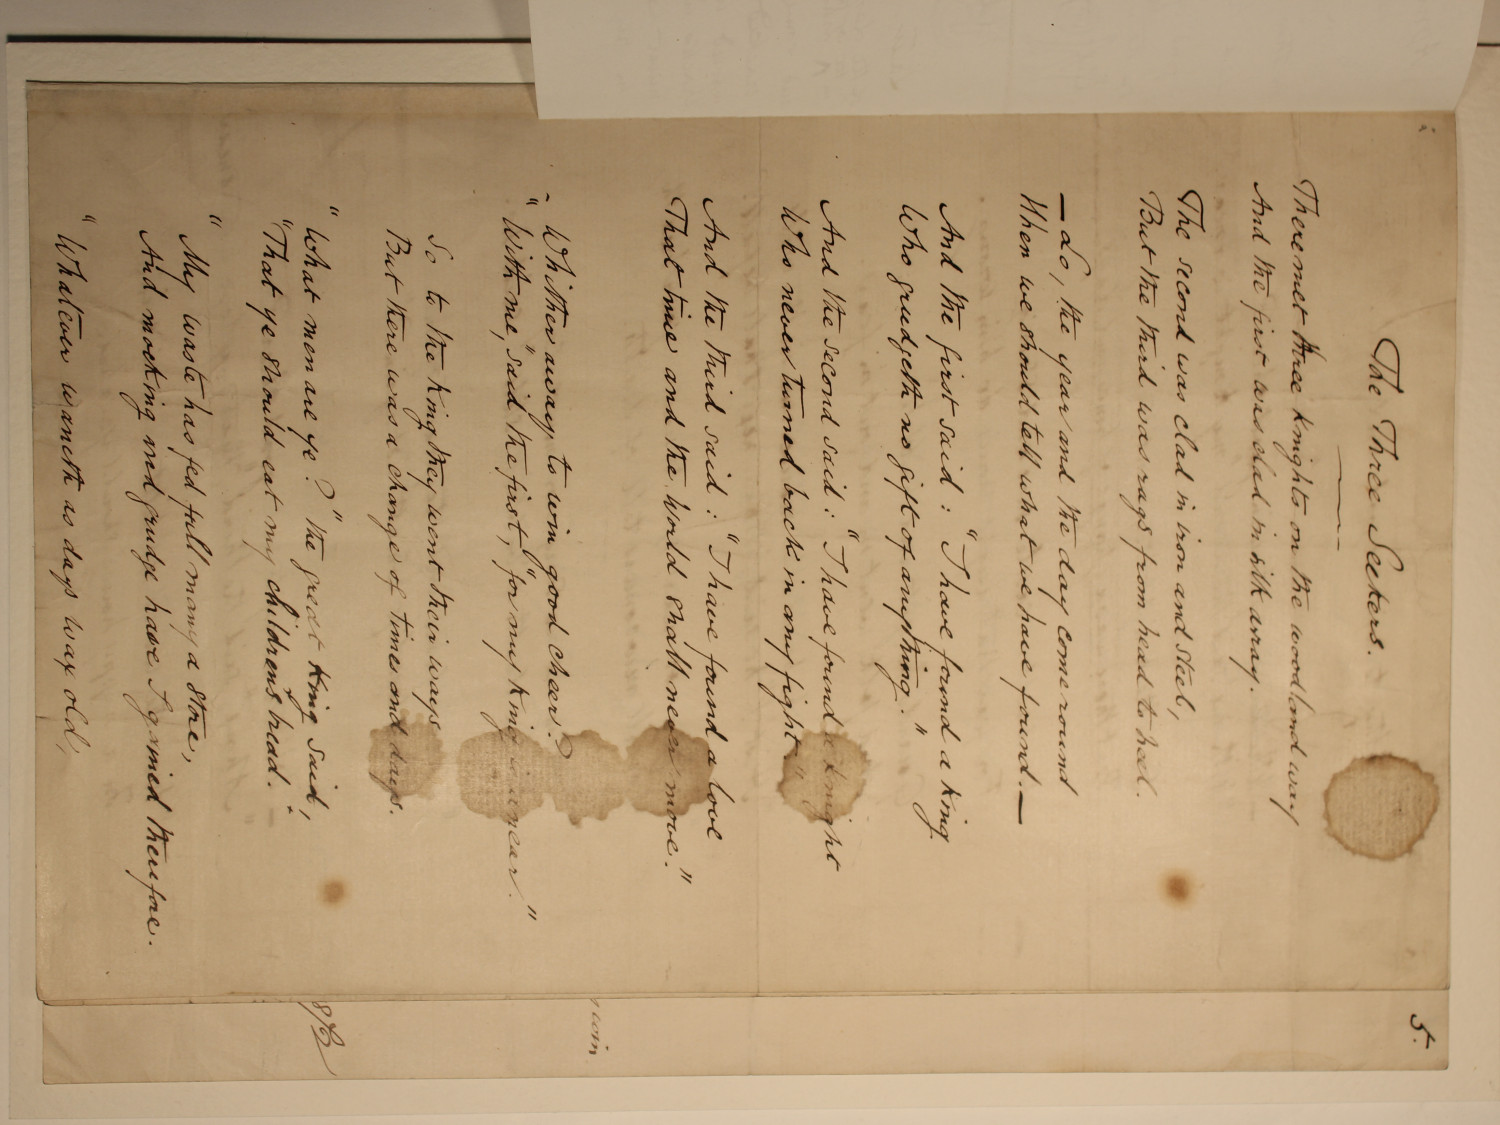 5.
The Three Seekers.
There met three knights on the woodland way
And the first was clad in silk array.
The second was clad in iron and steel,
But the third was rags from head to heel.
— Lo, the year and the day come round
When we should tell what we have found. —
And the first said: "I have found a king
Who grudgeth no gift of anything."
And the second said: "I have found a knight
Who never turned back in any fight."
And the third said: "I have found a love
That time and the world shall never move."
- Whither away to win good cheer?
"With me," said the first, "for my king is near."
So to the king they went their ways
But there was a change of times and days.
"What men are ye?" the great king said,
"That ye should eat my children's bread."
"My waste has fed full many a store,
And mocking and grudge have I gained therefore.
"Whatever waneth as days wax old,
coin